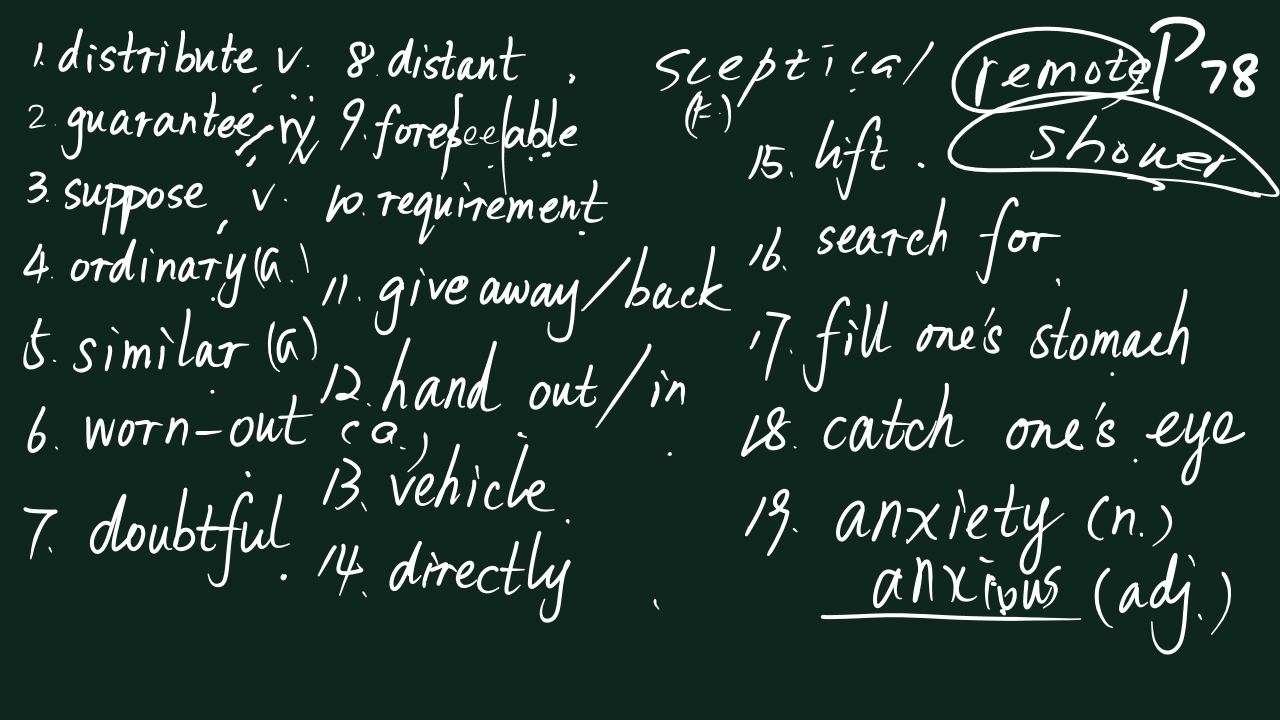 1. distribute v.
2. guarantee, n/v
3. suppose, v.
4. ordinary (a.)
5. similar (a)
6. worn-out (a.)
7. doubtful.
8. distant,
9. foreseeable
10. requirement
11. give away/back
12. hand out/in
13. vehicle
14. directly
sceptical
remote P78
shower
15. lift.
16. search for
17. fill one's stomach
18. catch one's eye
19. anxiety (n.)
anxious (adj.)